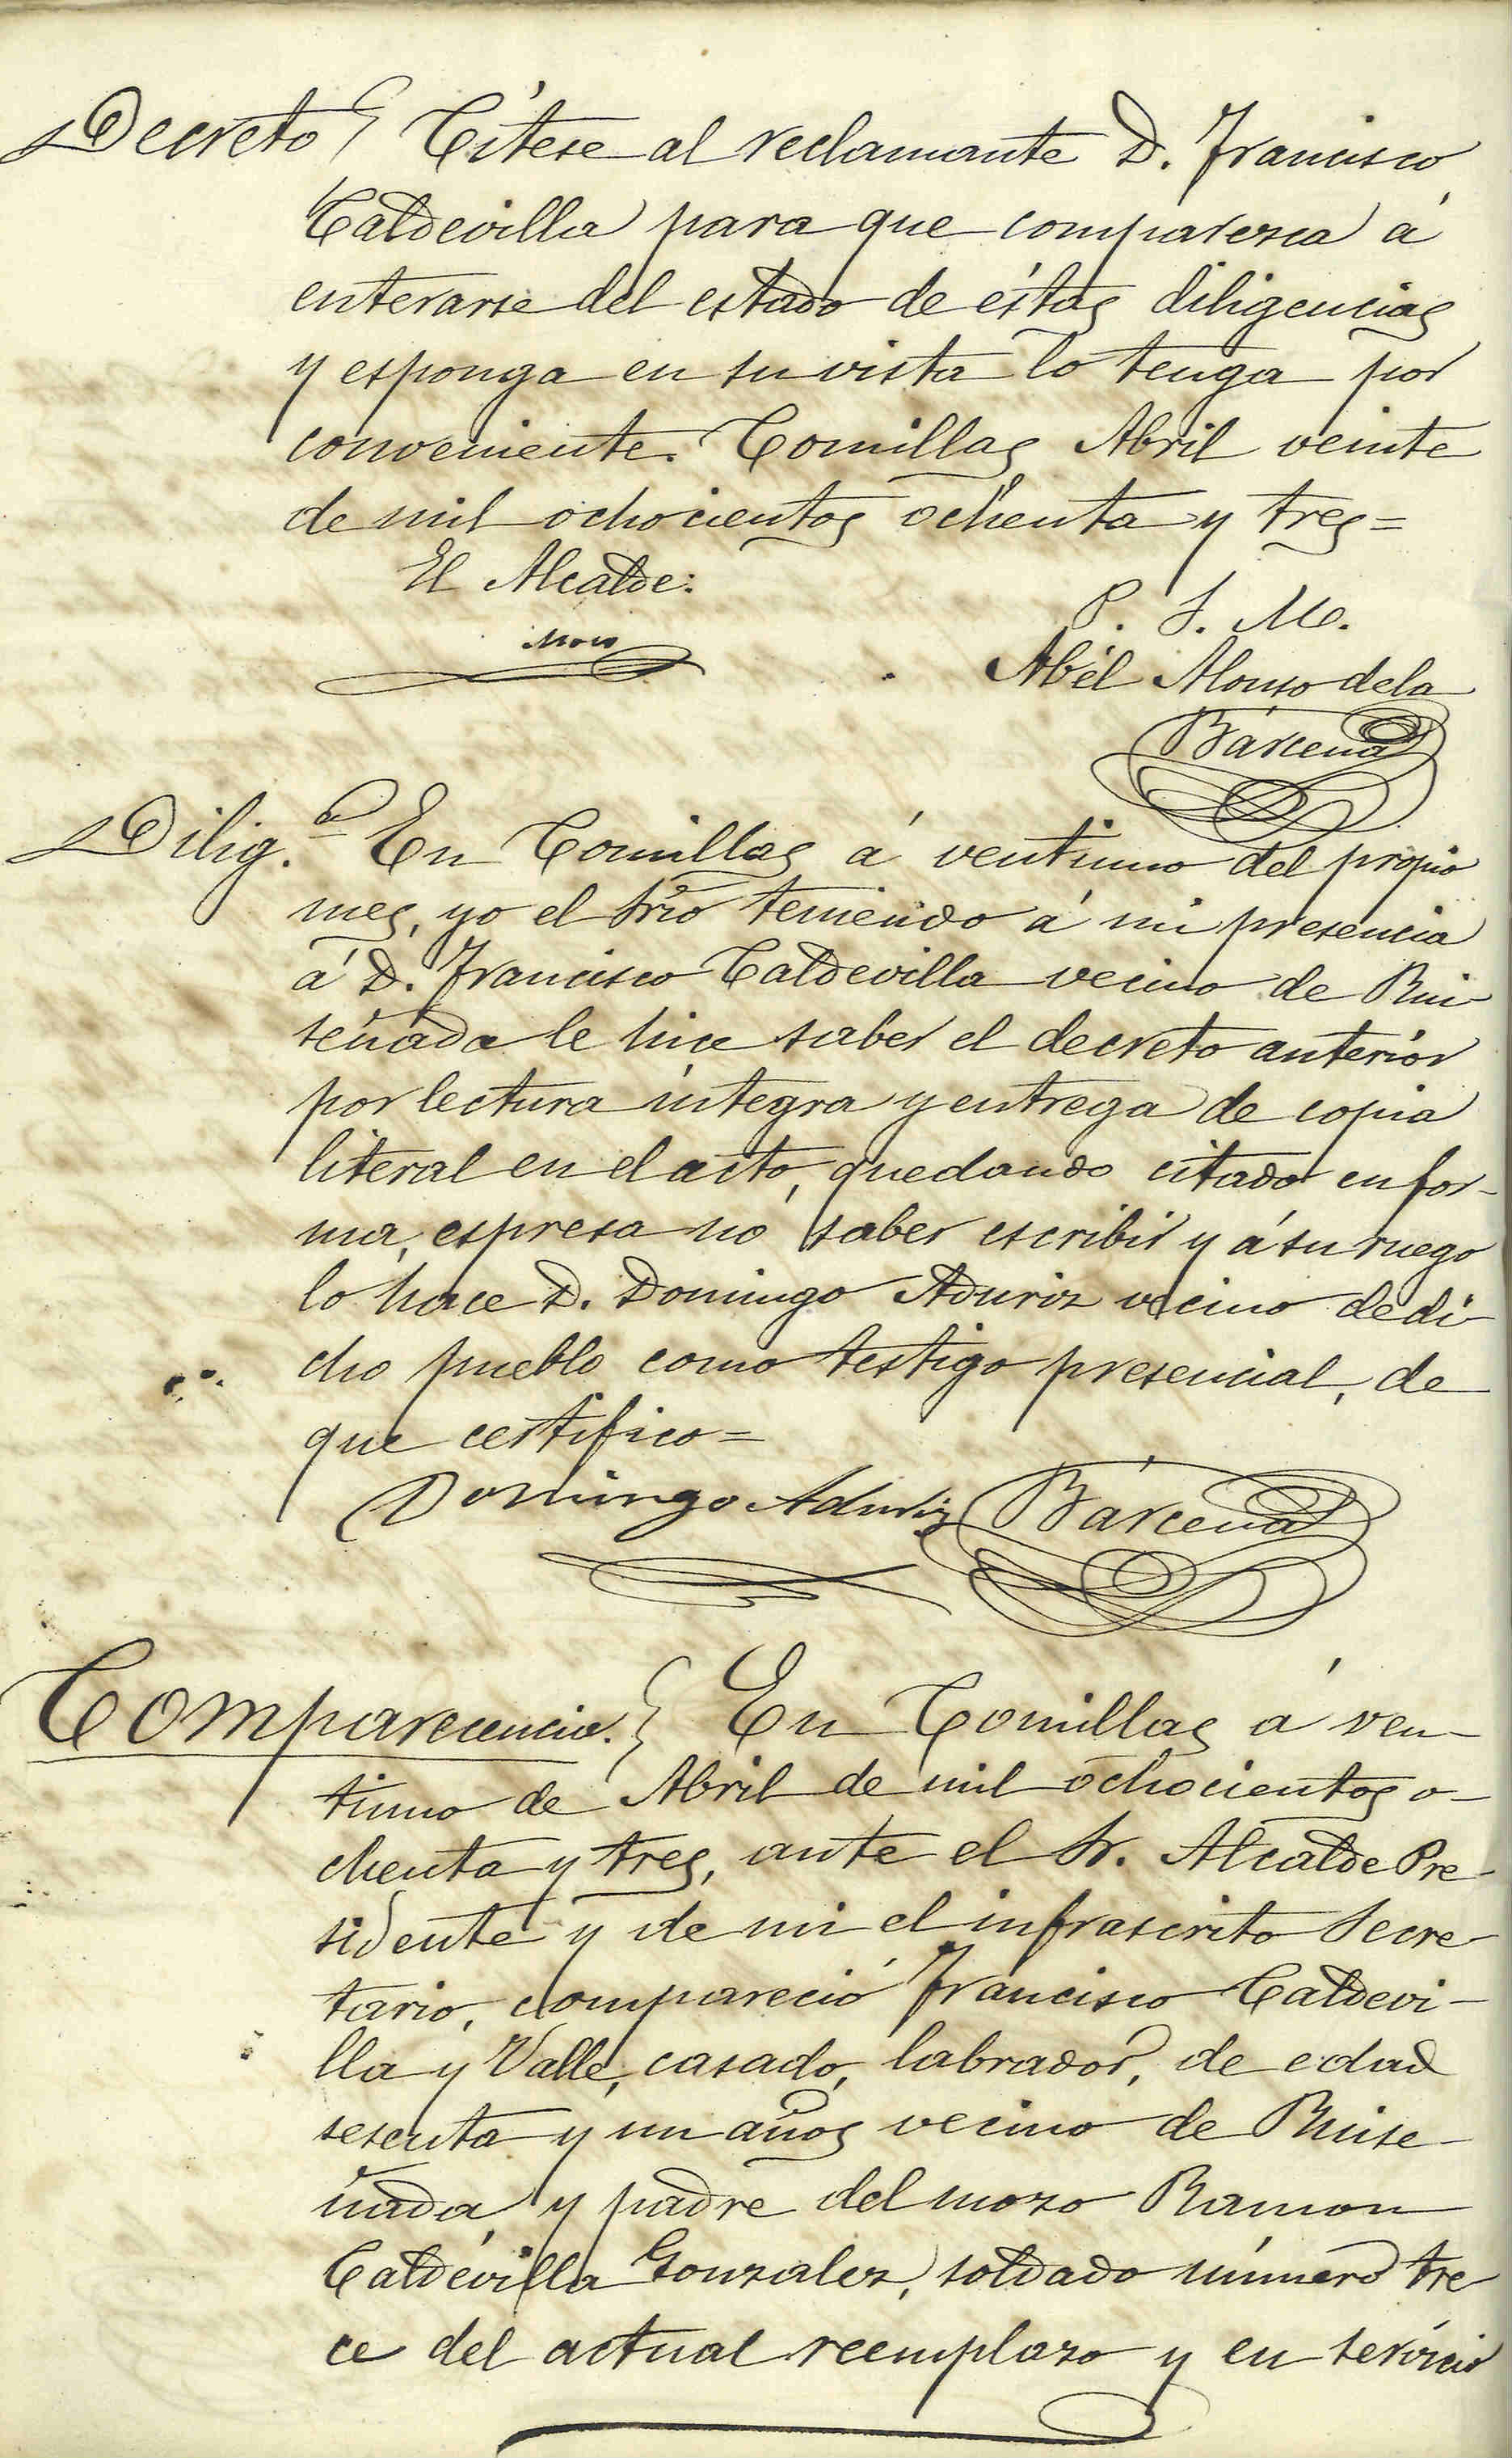 Decreto } Cítese al reclamante D. Francisco
Caldevilla para que comparezca á
enterarse del estado de éstas diligencias
y esponga en su vista lo tenga por
conveniente. Comillas Abril veinte
de mil ochocientos ochenta y tres=
El Alcalde:
P. S. M.
Abél Alonso de la
Bárcena
Dilig.a En Comillas á ventiuno del propio
mes, yo el Srio teniendo á mi presencia
á D. Francisco Caldevilla vecino de Rui-
señada le hice saber el decreto anterior
por lectura íntegra y entrega de copia
literal en el acto, quedando citado en for-
ma, espresa no saber escribir y á su ruego
lo hace D. Domingo Aduriz vecino de di-
cho pueblo como testigo presencial, de
que certifico=
Domingo Aduriz Bárcena
Comparecencia. } En Comillas á ven-
tiuno de Abril de mil ochocientos o-
chenta y tres, ante el Sr. Alcalde Pre-
sidente y de mi el infrascrito Secre-
tario, compareció Francisco Caldevi-
lla y Valle, casado, labrador, de edad
sesenta y un años vecino de Ruise-
ñada, y padre del mozo Ramon
Caldevilla Gonzalez, soldado número tre
ce del actual reemplazo y en servicio